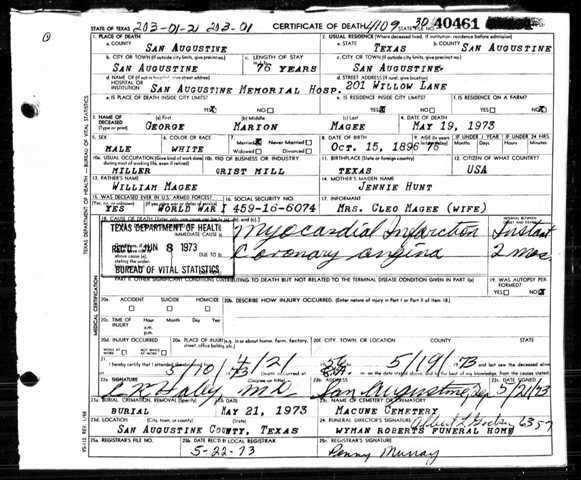 STATE OF TEXAS 203-01-21 203-01 CERTIFICATE OF DEATH 4109 STATE FILE NO. 40461
1. PLACE OF DEATH 2. USUAL RESIDENCE (Where deceased lived. If institution: residence before admission)
a. COUNTY SAN AUGUSTINE a. STATE TEXAS b. COUNTY SAN AUGUSTINE
b. CITY OR TOWN (If outside city limits, give precinct no.) c. LENGTH OF STAY c. CITY OR TOWN (If outside city limits, give precinct no.)
SAN AUGUSTINE 76 YEARS SAN AUGUSTINE
d. NAME OF (If not in hospital, give street address) HOSPITAL OR INSTITUTION SAN AUGUSTINE MEMORIAL HOSP. d. STREET ADDRESS (If rural, give location) 201 WILLOW LANE
e. IS PLACE OF DEATH INSIDE CITY LIMITS? YES NO e. IS RESIDENCE INSIDE CITY LIMITS? YES NO f. IS RESIDENCE ON A FARM? YES NO
3. NAME OF DECEASED (Type or print) (a) First (b) Middle (c) Last 4. DATE OF DEATH
GEORGE MARION MAGEE MAY 19, 1973
5. SEX 6. COLOR OR RACE 7. Married Never Married Widowed Divorced 8. DATE OF BIRTH 9. AGE IF UNDER 1 YEAR IF UNDER 24 HRS.
MALE WHITE OCT. 15, 1896 Months Days Hours
10a. USUAL OCCUPATION (Give kind of work done during most of working life, even if retired) 10b. KIND OF BUSINESS OR INDUSTRY 11. BIRTHPLACE (State or foreign country) 12. CITIZEN OF WHAT COUNTRY?
MILLER GRIST MILL TEXAS USA
13. FATHER'S NAME 14. MOTHER'S MAIDEN NAME
WILLIAM MAGEE JENNIE HUNT
15. WAS DECEASED EVER IN U.S. ARMED FORCES? 16. SOCIAL SECURITY NO. 17. INFORMANT
YES WORLD WAR I 459-16-6074 MRS. CLEO MAGEE (WIFE)
18. CAUSE OF DEATH
TEXAS DEPARTMENT OF HEALTH IMMEDIATE CAUSE Myocardial Infarction Instant
REC'D JUN 8 1973 DUE TO Coronary angina 2 mos.
BUREAU OF VITAL STATISTICS
PART II OTHER SIGNIFICANT CONDITIONS CONTRIBUTING TO DEATH BUT NOT RELATED TO THE TERMINAL DISEASE CONDITION GIVEN IN PART I(a) 19. WAS AUTOPSY PERFORMED? YES NO
20a. ACCIDENT SUICIDE HOMICIDE 20b. DESCRIBE HOW INJURY OCCURRED. (Enter nature of injury in Part I or Part II of item 18)
20c. TIME OF INJURY Hour Month Day Year a.m. p.m.
20d. INJURY OCCURRED WHILE AT WORK NOT WHILE AT WORK 20e. PLACE OF INJURY (e.g., in or about home, farm, factory, street, office building, etc.) 20f. CITY, TOWN, OR LOCATION COUNTY STATE
21. I hereby certify that I attended the deceased from 5/19/73
22a. SIGNATURE (Degree or title) 22b. ADDRESS 22c. DATE SIGNED
Haley M.D. San Augustine, Tex 5/21/73
23a. BURIAL, CREMATION, REMOVAL (Specify) 23b. DATE 23c. NAME OF CEMETERY OR CREMATORY
BURIAL MAY 21, 1973 MACUNE CEMETERY
23d. LOCATION (City, town, or county) (State) 24. FUNERAL DIRECTOR'S SIGNATURE 6357
SAN AUGUSTINE COUNTY, TEXAS WYMAN ROBERTS FUNERAL HOME
25a. REGISTRAR'S FILE NO. 25b. DATE REC'D BY LOCAL REGISTRAR 25c. REGISTRAR'S SIGNATURE
5-22-73 Penny Murray
TEXAS DEPARTMENT OF HEALTH - BUREAU OF VITAL STATISTICS
MEDICAL CERTIFICATION